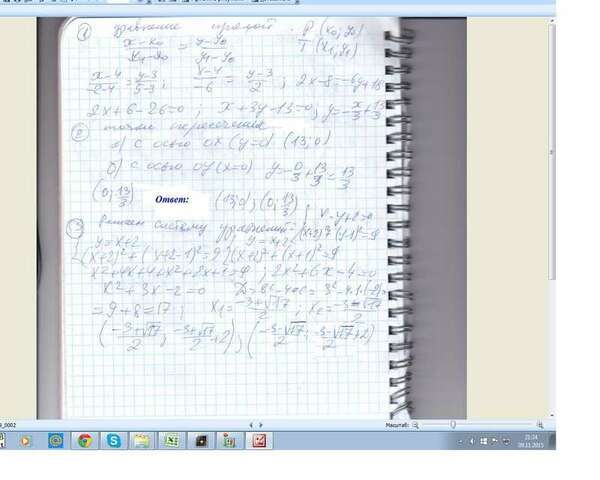 ① уравнение прямой. P (x0; y0)
x-x0/x1-x0 = y-y0/y1-y0 T (x1, y1)
x-4/-2-4 = y-3/5-3; x-4/-6 = y-3/2; 2x-8=-6y+18
2x+6-26=0; x+3y-13=0; y=-x/3+13/3
② точки пересечения
а) с осью ox (y=0) (13; 0)
б) с осью oy (x=0) y=-0/3+13/3=13/3
(0; 13/3) Ответ: (13; 0); (0; 13/3)
③ Решаем систему уравнений { x-y+2=0
(x+2)²+(y-1)²=9
{ y=x+2
(x+2)²+(x+2-1)²=9 } y=x+2
(x+2)²+(x+1)²=9
x²+4x+4+x²+2x+1=9; 2x²+6x-4=0
x²+3x-2=0 D=b²-4ac=3²-4·1·(-2)=
=9+8=17; x1=-3+√17/2; x2=-3-√17/2
(-3+√17/2; -3+√17/2+2); (-3-√17/2; -3-√17/2+2)
_0002
Масштаб:
21:24
09.11.2015